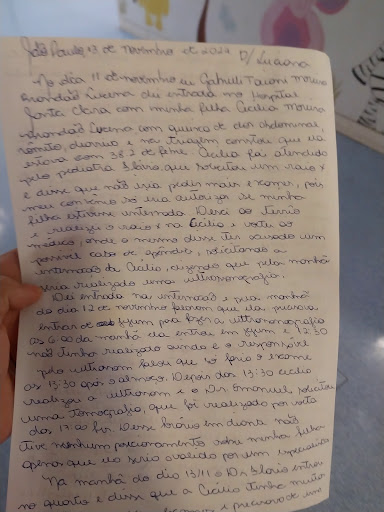 São Paulo, 13 de novembro de 2024 D/ Luciana
No dia 11 de novembro eu Gabrielli Taioni Moura
Brandão Lucena dei entrada no Hospital
Santa Clara com minha filha Cecilia Moura
Brandão Lucena com queixa de dor abdominal,
vômito, diarreia e na triagem constou que ela
estava com 38.2 de febre. Cecilia foi atendida
pelo pediatra Flávio que solicitou um raio x
e disse que não iria pedir mais exames, pois
meu convênio só iria autorizar se minha
filha estivesse internada. Desci ao térreo
e realizei o raio x na Cecilia e voltei ao
médico, onde o mesmo disse ter causado um
possível caso de apêndice, solicitando a
internação da Cecilia, dizendo que pela manhã
seria realizado uma ultrassonografia.
Dei entrada na internação e pela manhã
do dia 12 de novembro falaram que ela precisava
entrar de jejum para fazer a ultrassonografia
às 6:00 da manhã ela entrou em jejum e 12:30
não tinha realizado ainda e o responsável
pelo ultrassom falou que só faria o exame
às 13:30 após o almoço. Depois das 13:30 Cecilia
realizou a ultrassom e o Dr. Emanuel solicitou
uma tomografia, que foi realizado por volta
das 17:00 hr. Desse horário em diante não
tive nenhum posicionamento sobre minha filha
apenas que ela seria avaliada por um especialista
Na manhã do dia 13/11 o Dr. Flávio entrou
no quarto e disse que a Cecilia tinha muito
e precisava de um